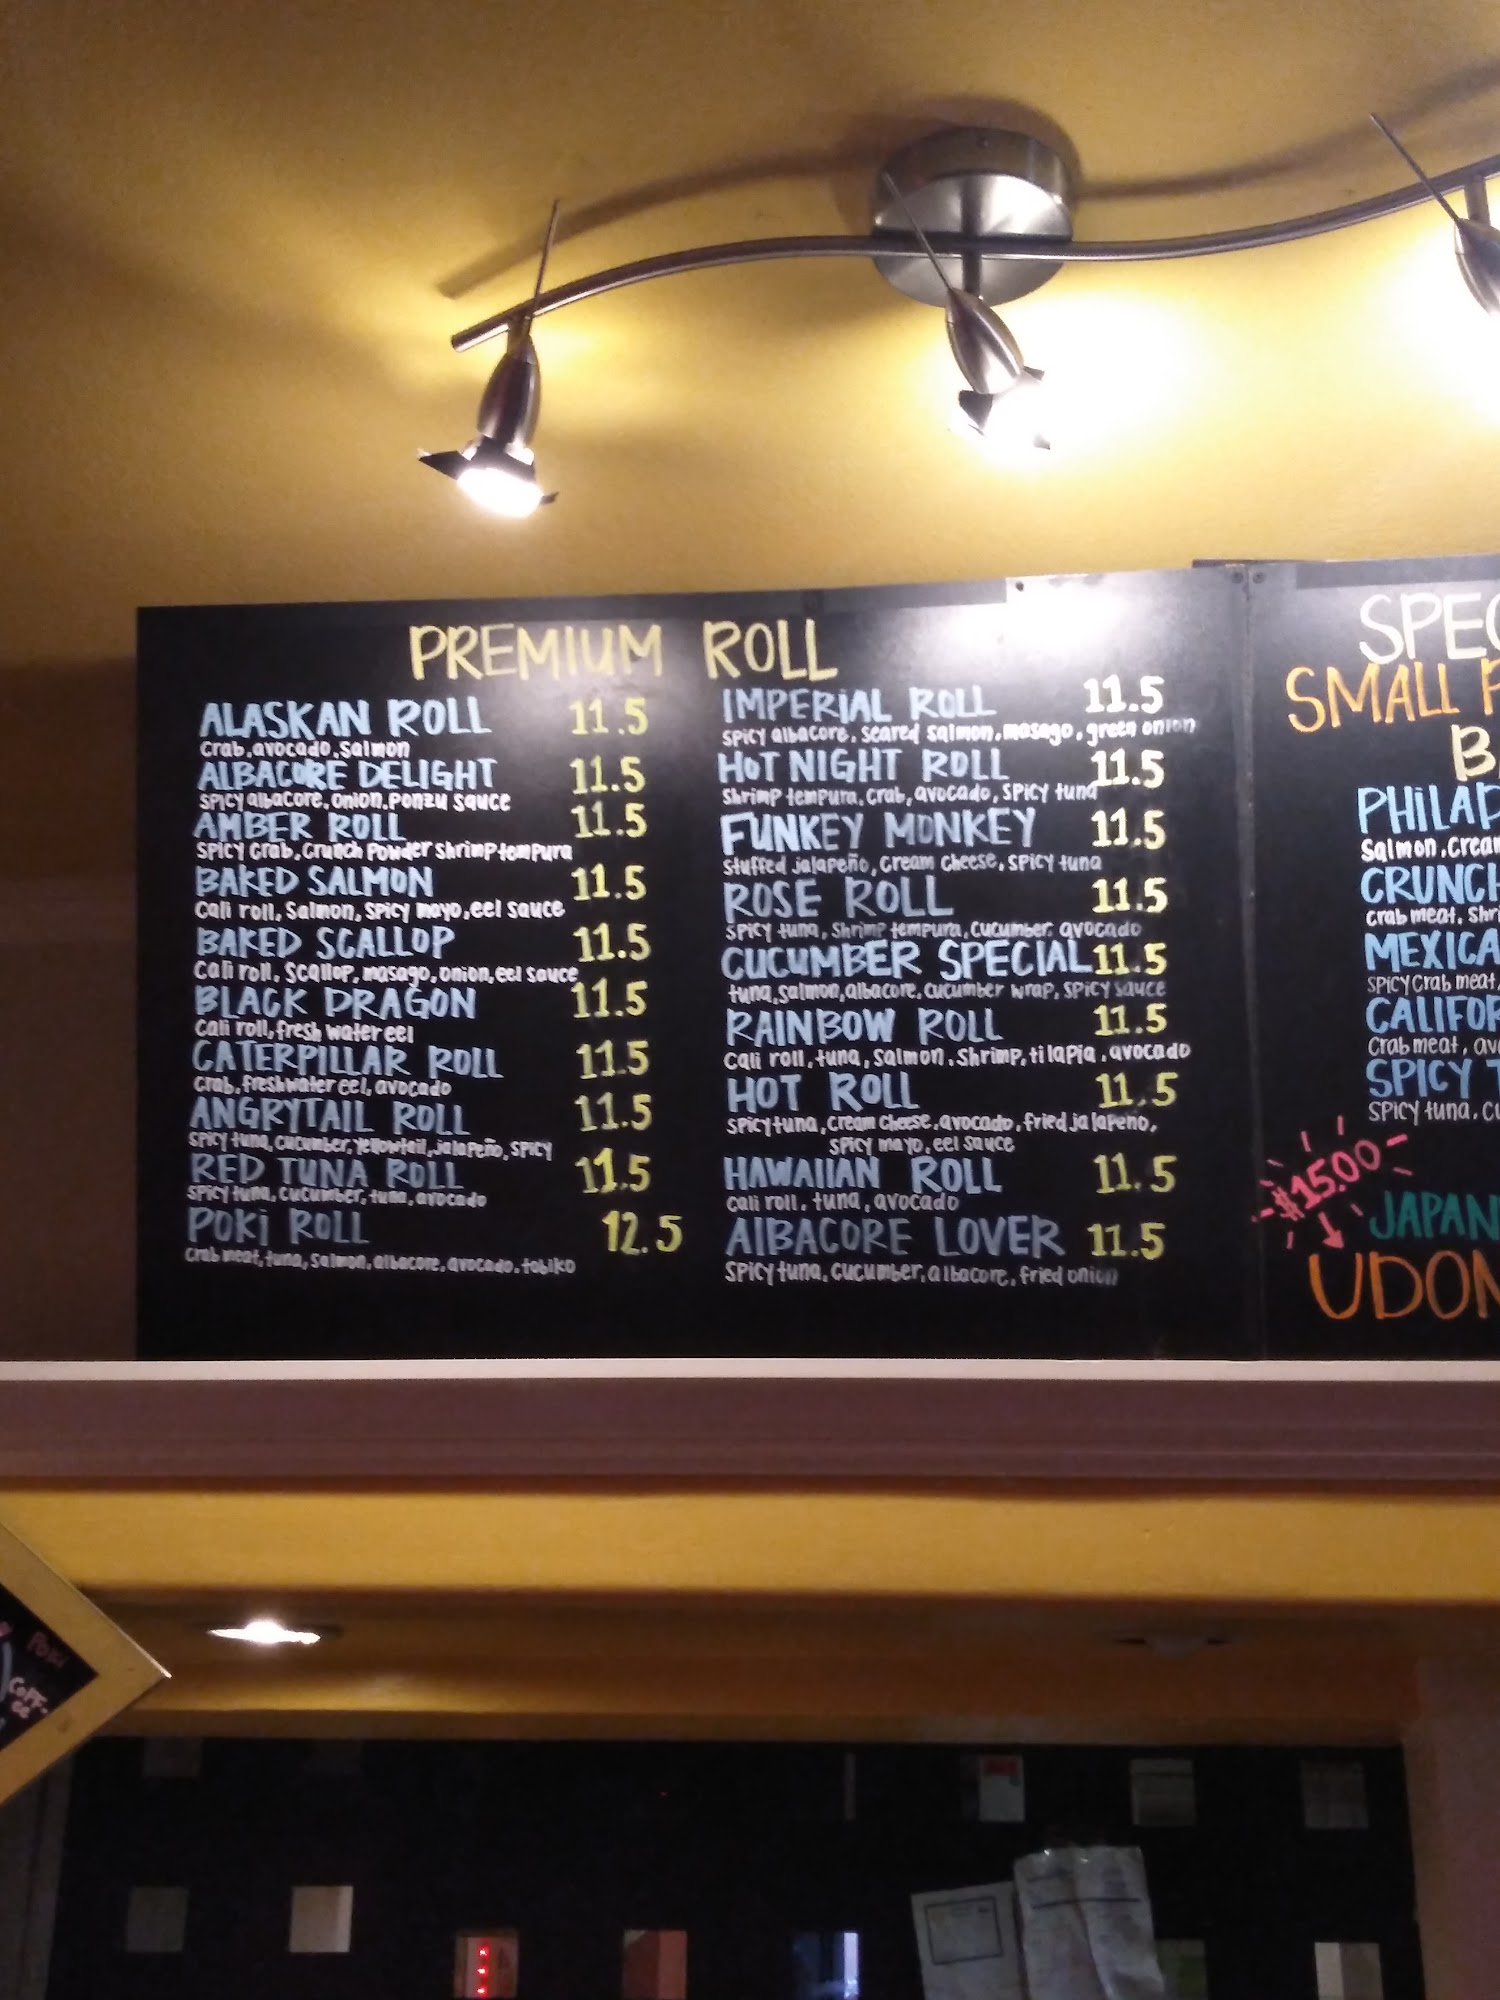 PREMIUM ROLL
ALASKAN ROLL 11.5
crab, avocado, salmon
ALBACORE DELIGHT 11.5
spicy albacore, onion, ponzu sauce
AMBER ROLL 11.5
spicy crab, crunch powder shrimp tempura
BAKED SALMON 11.5
cali roll, salmon, spicy mayo, eel sauce
BAKED SCALLOP 11.5
cali roll, scallop, masago, onion, eel sauce
BLACK DRAGON 11.5
cali roll, fresh water eel
CATERPILLAR ROLL 11.5
crab, freshwater eel, avocado
ANGRYTAIL ROLL 11.5
spicy tuna, cucumber, yellowtail, jalapeño, spicy
RED TUNA ROLL 11.5
spicy tuna, cucumber, tuna, avocado
POKi ROLL 12.5
crab meat, tuna, salmon, albacore, avocado, tobiko
IMPERiAL ROLL 11.5
spicy albacore, seared salmon, masago, green onion
HOT NIGHT ROLL 11.5
shrimp tempura, crab, avocado, spicy tuna
FUNKEY MONKEY 11.5
stuffed jalapeño, cream cheese, spicy tuna
ROSE ROLL 11.5
spicy tuna, shrimp tempura, cucumber, avocado
CUCUMBER SPECIAL 11.5
tuna, salmon, albacore, cucumber wrap, spicy sauce
RAINBOW ROLL 11.5
cali roll, tuna, salmon, shrimp, tilapia, avocado
HOT ROLL 11.5
spicy tuna, cream cheese, avocado, fried jalapeno,
spicy mayo, eel sauce
HAWAIIAN ROLL 11.5
cali roll, tuna, avocado
AlBACORE LOVER 11.5
spicy tuna, cucumber, albacore, fried onion
SPEC
SMALL
PHiLAD
salmon, cream
CRUNCH
crab meat, shr
MEXICA
spicy crab meat,
CALIFOR
crab meat, av
SPICY T
spicy tuna, cu
$15.00
JAPAN
UDON
POKI
COFF-
EE